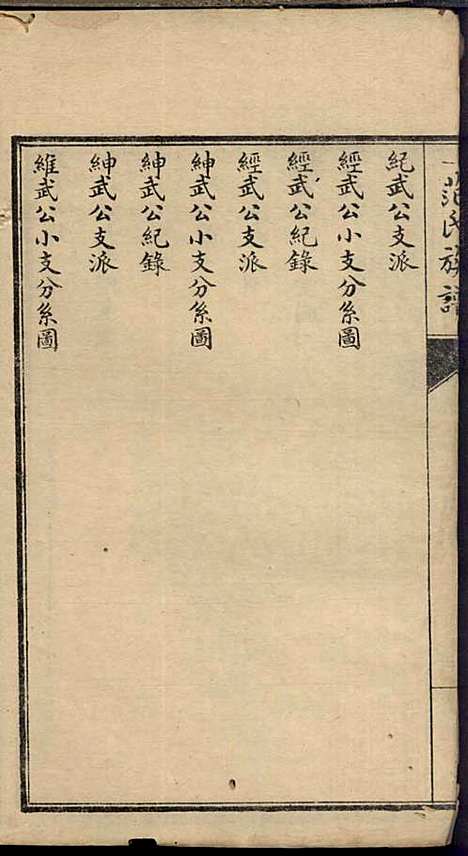 范氏族譜
紀武公支派
經武公小支分系圖
經武公紀錄
經武公支派
紳武公小支分系圖
紳武公紀錄
紳武公支派
維武公小支分系圖